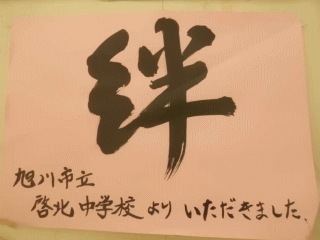 絆
旭川市立
啓北中学校よりいただきました、